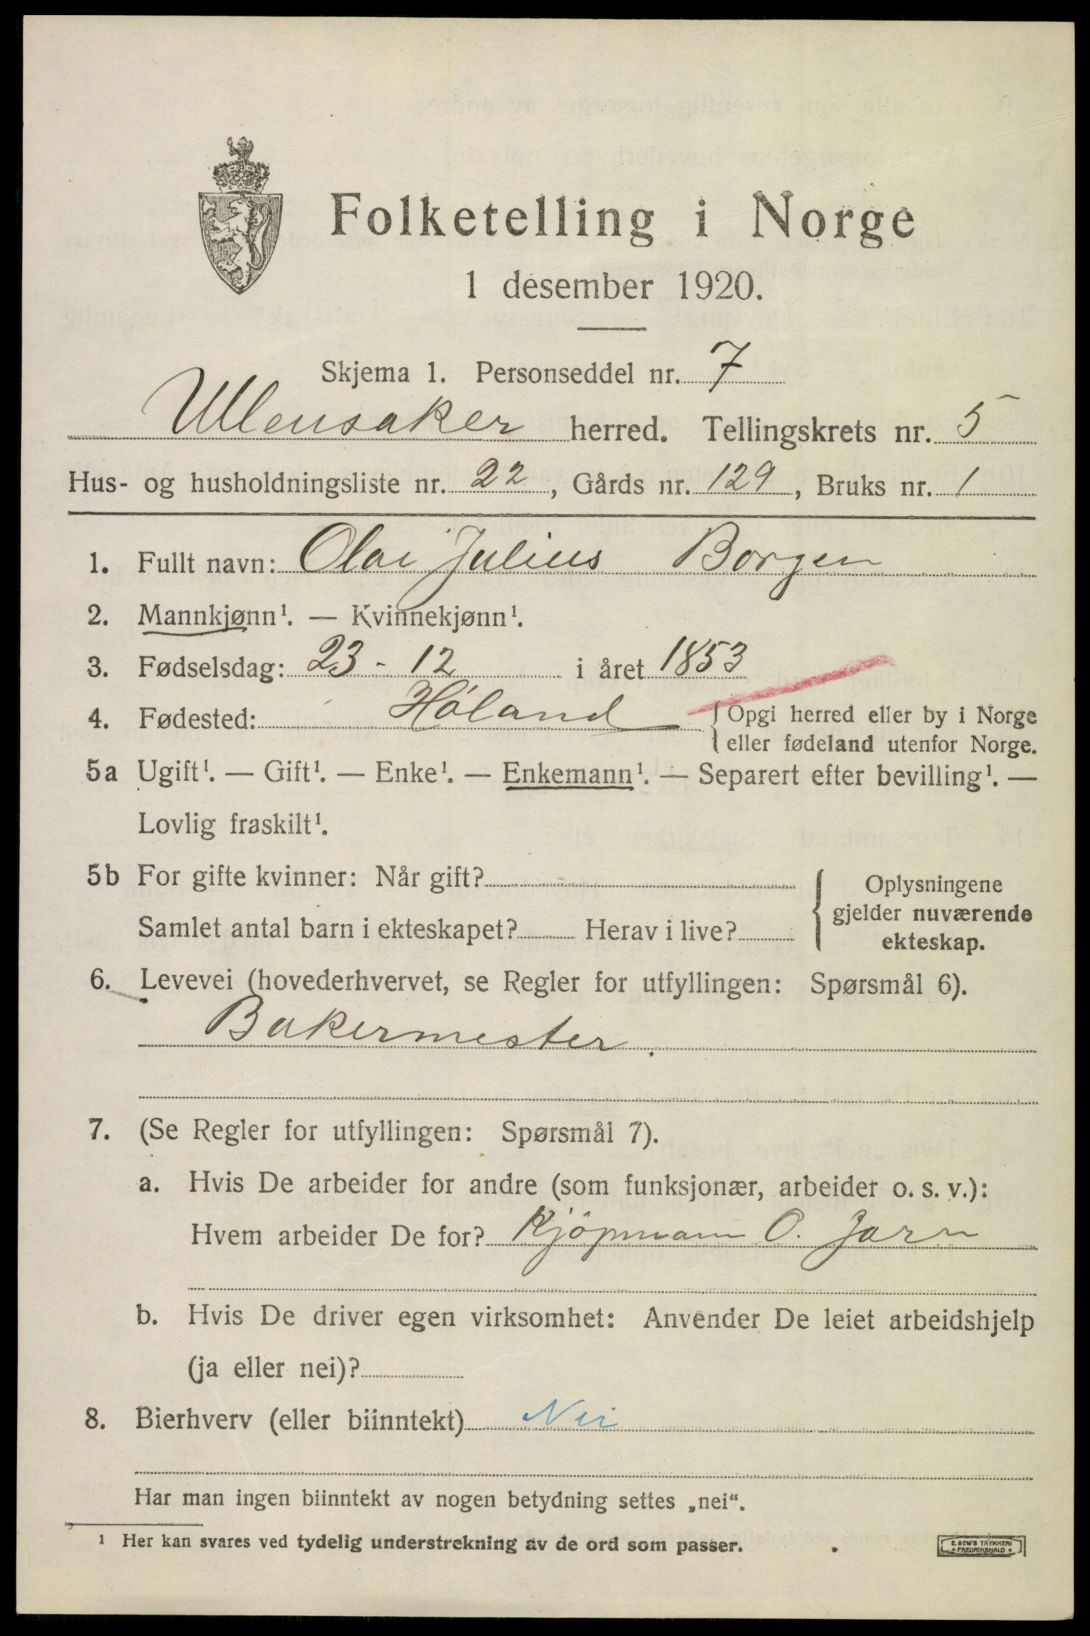 Folketelling i Norge
1 desember 1920.
Skjema 1. Personseddel nr. 7
Ullensaker herred. Tellingskrets nr. 5
Hus- og husholdningsliste nr. 22, Gårds nr. 129, Bruks nr. 1
1. Fullt navn: Olai Julius Borgen
2. Mannkjønn¹. — Kvinnekjønn¹.
3. Fødselsdag: 23 - 12 i året 1853
4. Fødested: Høland { Opgi herred eller by i Norge
eller fødeland utenfor Norge.
5a Ugift¹. — Gift¹. — Enke¹. — Enkemann¹. — Separert efter bevilling¹. —
Lovlig fraskilt¹.
5b For gifte kvinner: Når gift?
Samlet antal barn i ekteskapet? Herav i live?
{ Oplysningene
gjelder nuværende
ekteskap.
6. Levevei (hovederhvervet, se Regler for utfyllingen: Spørsmål 6).
Bakermester.
7. (Se Regler for utfyllingen: Spørsmål 7).
a. Hvis De arbeider for andre (som funksjonær, arbeider o. s. v.):
Hvem arbeider De for? Kjöpmann O. Jarn
b. Hvis De driver egen virksomhet: Anvender De leiet arbeidshjelp
(ja eller nei)?
8. Bierhverv (eller biinntekt) Nei
Har man ingen biinntekt av nogen betydning settes „nei“.
¹ Her kan svares ved tydelig understrekning av de ord som passer.
E. SEM'S TRYKKERI
FREDRIKSHALD